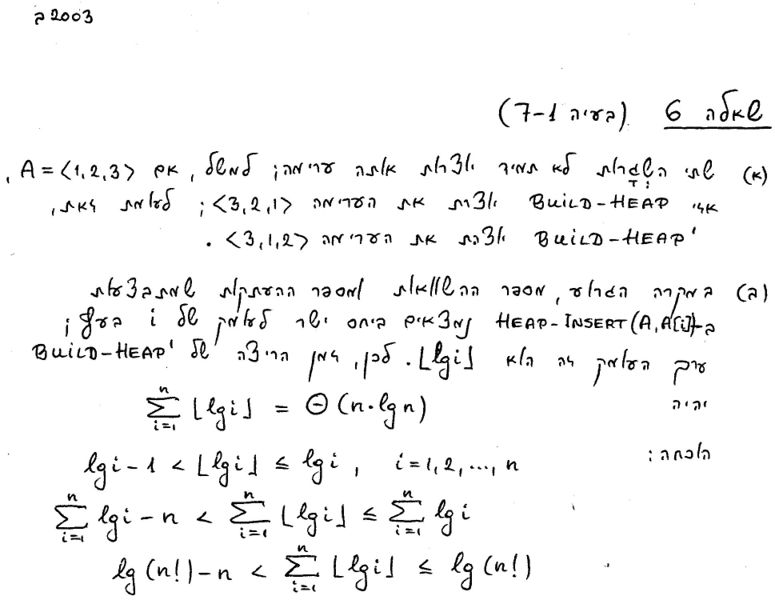 2003ב
שאלה 6 (בעיה 7-1)
(א) שתי השגרות לא תמיד יוצרות אותה ערימה; למשל, אם A = <1,2,3>,
אזי BUILD-HEAP יוצרת את הערימה <3,2,1>; לעומת זאת,
BUILD-HEAP' יוצרת את הערימה <3,1,2>.
(ב) במקרה הגרוע, מספר ההשוואות ומספר ההעתקות שמתבצעות
ב-HEAP-INSERT(A,A[i]) נמצאים ביחס ישר לעומק של i בעץ;
ערך העומק זה הוא ⌊lg i⌋. לכן, זמן הריצה של BUILD-HEAP'
יהיה ∑_{i=1}^{n} ⌊lg i⌋ = Θ(n·lg n)
הוכחה: lg i - 1 < ⌊lg i⌋ ≤ lg i, i = 1, 2, ..., n
∑_{i=1}^{n} lg i - n < ∑_{i=1}^{n} ⌊lg i⌋ ≤ ∑_{i=1}^{n} lg i
lg(n!) - n < ∑_{i=1}^{n} ⌊lg i⌋ ≤ lg(n!)